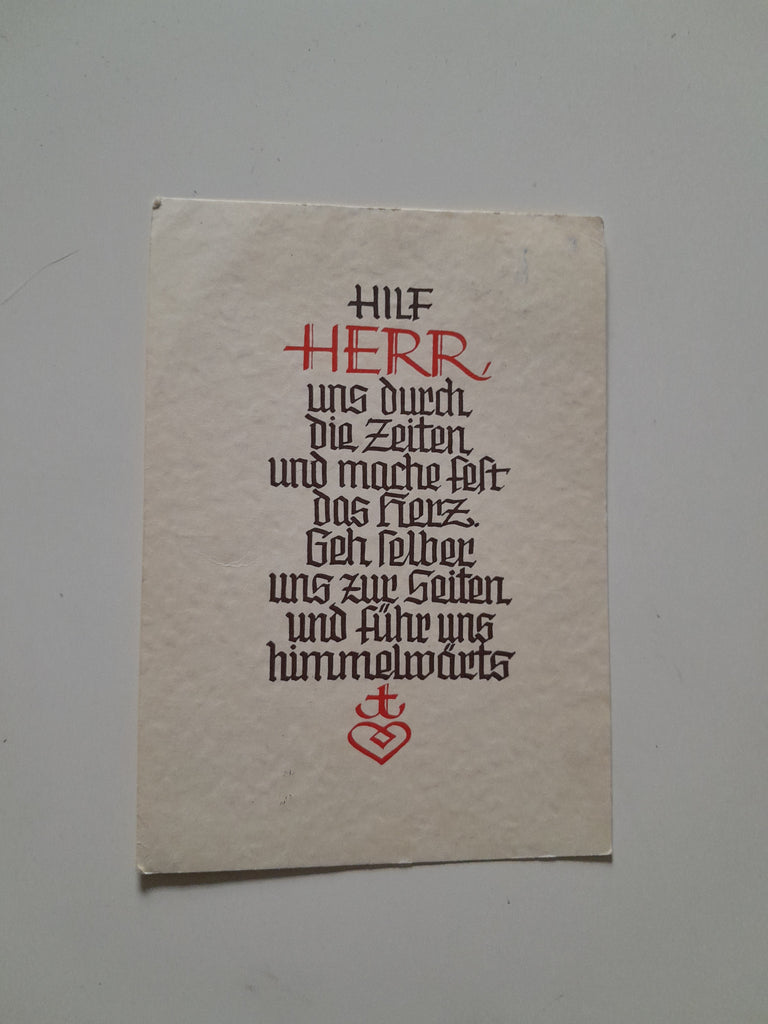 HILF
HERR,
uns durch
die Zeiten
und mache fest
das Herz.
Geh selber
uns zur Seiten
und führ uns
himmelwärts